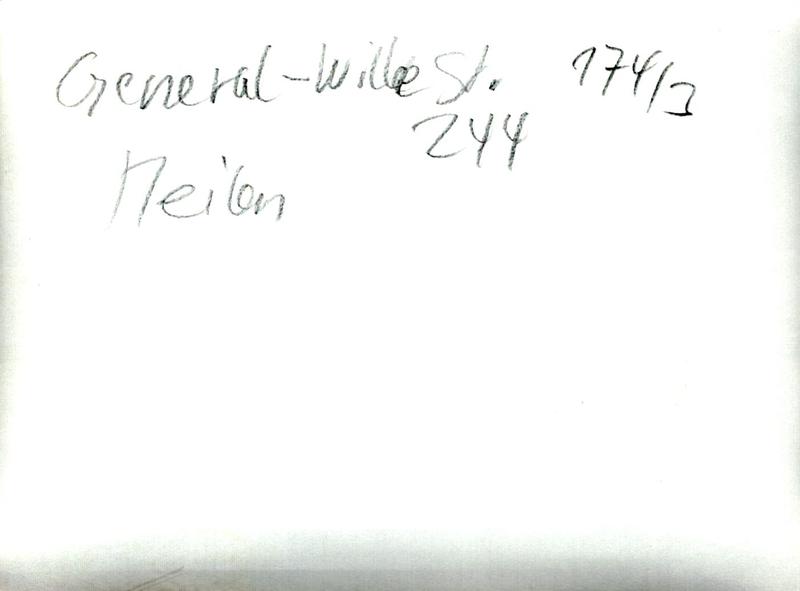 General-Wille St. 174/3
244
Meilen